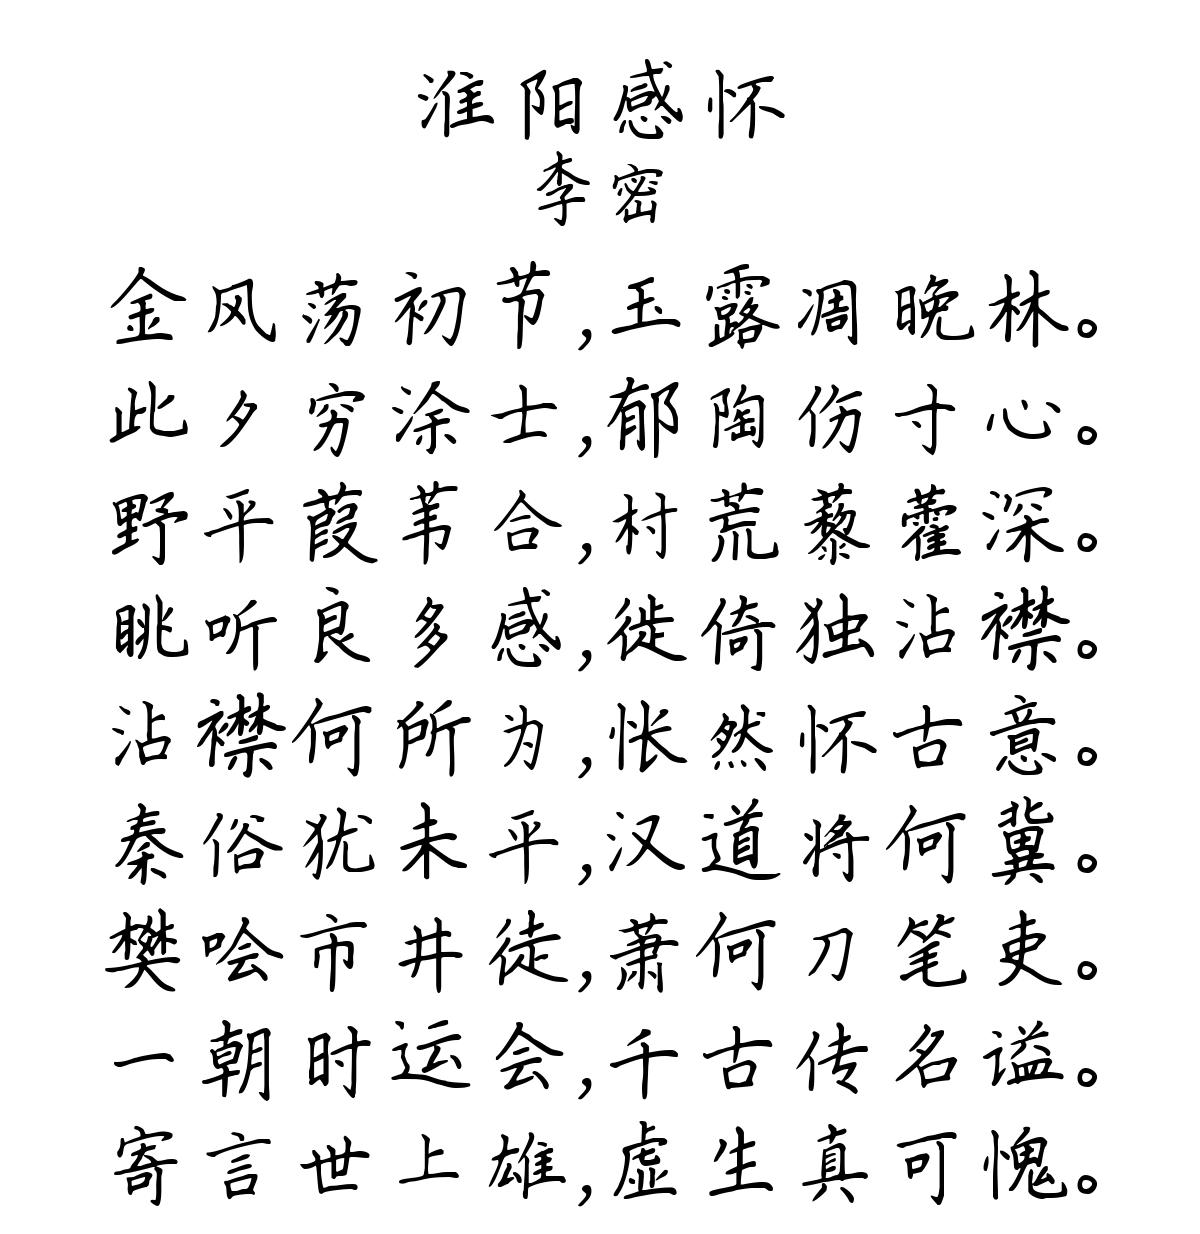 淮阳感怀
李密
金风荡初节,玉露凋晚林。
此夕穷涂士,郁陶伤寸心。
野平葭苇合,村荒藜藿深。
眺听良多感,徙倚独沾襟。
沾襟何所为,怅然怀古意。
秦俗犹未平,汉道将何冀。
樊哙市井徒,萧何刀笔吏。
一朝时运会,千古传名谥。
寄言世上雄,虚生真可愧。